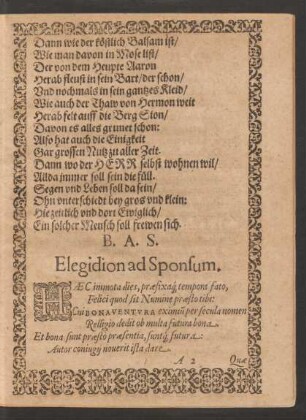 Dann wie der köstlich Balsam ist/
Wie man davon in Mose list/
Der von dem Heupte Aaron
Herab fleust in sein Bart/der schon/
Und nochmals in sein gantzes Kleid/
Wie auch der Thaw von Hermon weit
Herab felt auff die Berg Sion/
Davon es alles grunet schon:
Also hat auch die Einigkeit
Gar grossen Nutz zu aller Zeit.
Dann wo der HERR selbst wohnen wil/
Allda immer soll sein die füll.
Segen und Leben soll da sein/
Ohn unterschiedt bey gros und klein:
Hie zeitlich und dort Ewiglich/
Ein solcher Mensch soll frewen sich.
B. A. S.
Elegidion ad Sponsum.
HÆC immota dies, præfixaq́; tempora fato,
Felici quod sit Numine præsto tibi:
Cui BONAVENTVRA eximiũ per secula nomen
Relligio dedit ob multa futura bona.
Et bona sunt præsto præsentia, suntq́; futura
Autor coniugij noverit ista dare.
A 2
Quæ